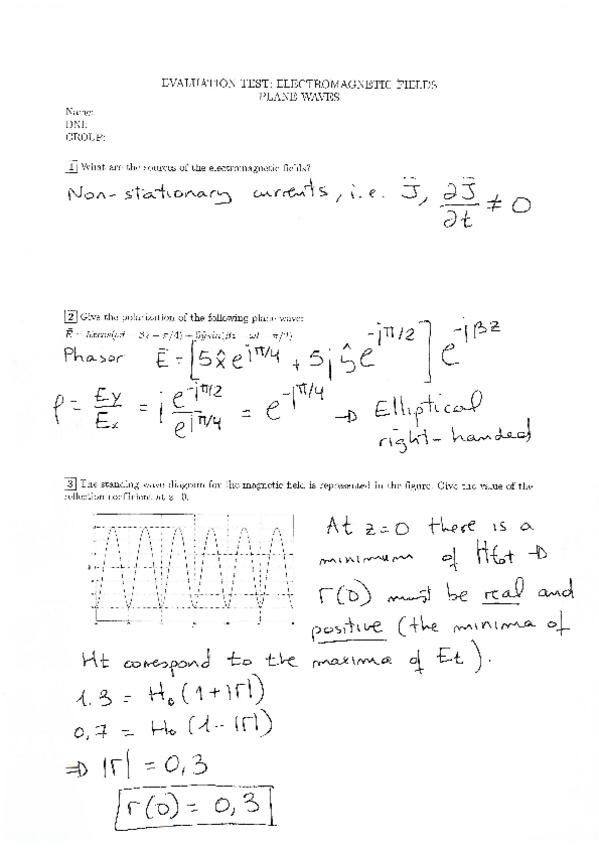 EVALUATION TEST: ELECTROMAGNETIC FIELDS
PLANE WAVES
Name:
DNI:
GROUP:
1 What are the sources of the electromagnetic fields?
Non-stationary currents, i.e. J⃗, ∂J⃗/∂t ≠ 0
2 Give the polarization of the following plane wave:
Phasor E⃗ = [5x̂e^{jπ/4} + 5jŷe^{-jπ/2}] e^{-jβz}
ρ = Ey/Ex = j e^{-jπ/2}/e^{jπ/4} = e^{-jπ/4} → Elliptical
right-handed
3 The standing wave diagram for the magnetic field is represented in the figure. Give the value of the
reflection coefficient at z=0.
At z=0 there is a
minimum of Htot →
Γ(0) must be real and
positive (the minima of
Ht correspond to the maxima of Et).
1.3 = H₀ (1+|Γ|)
0,7 = H₀ (1-|Γ|)
⇒ |Γ| = 0,3
Γ(0) = 0,3